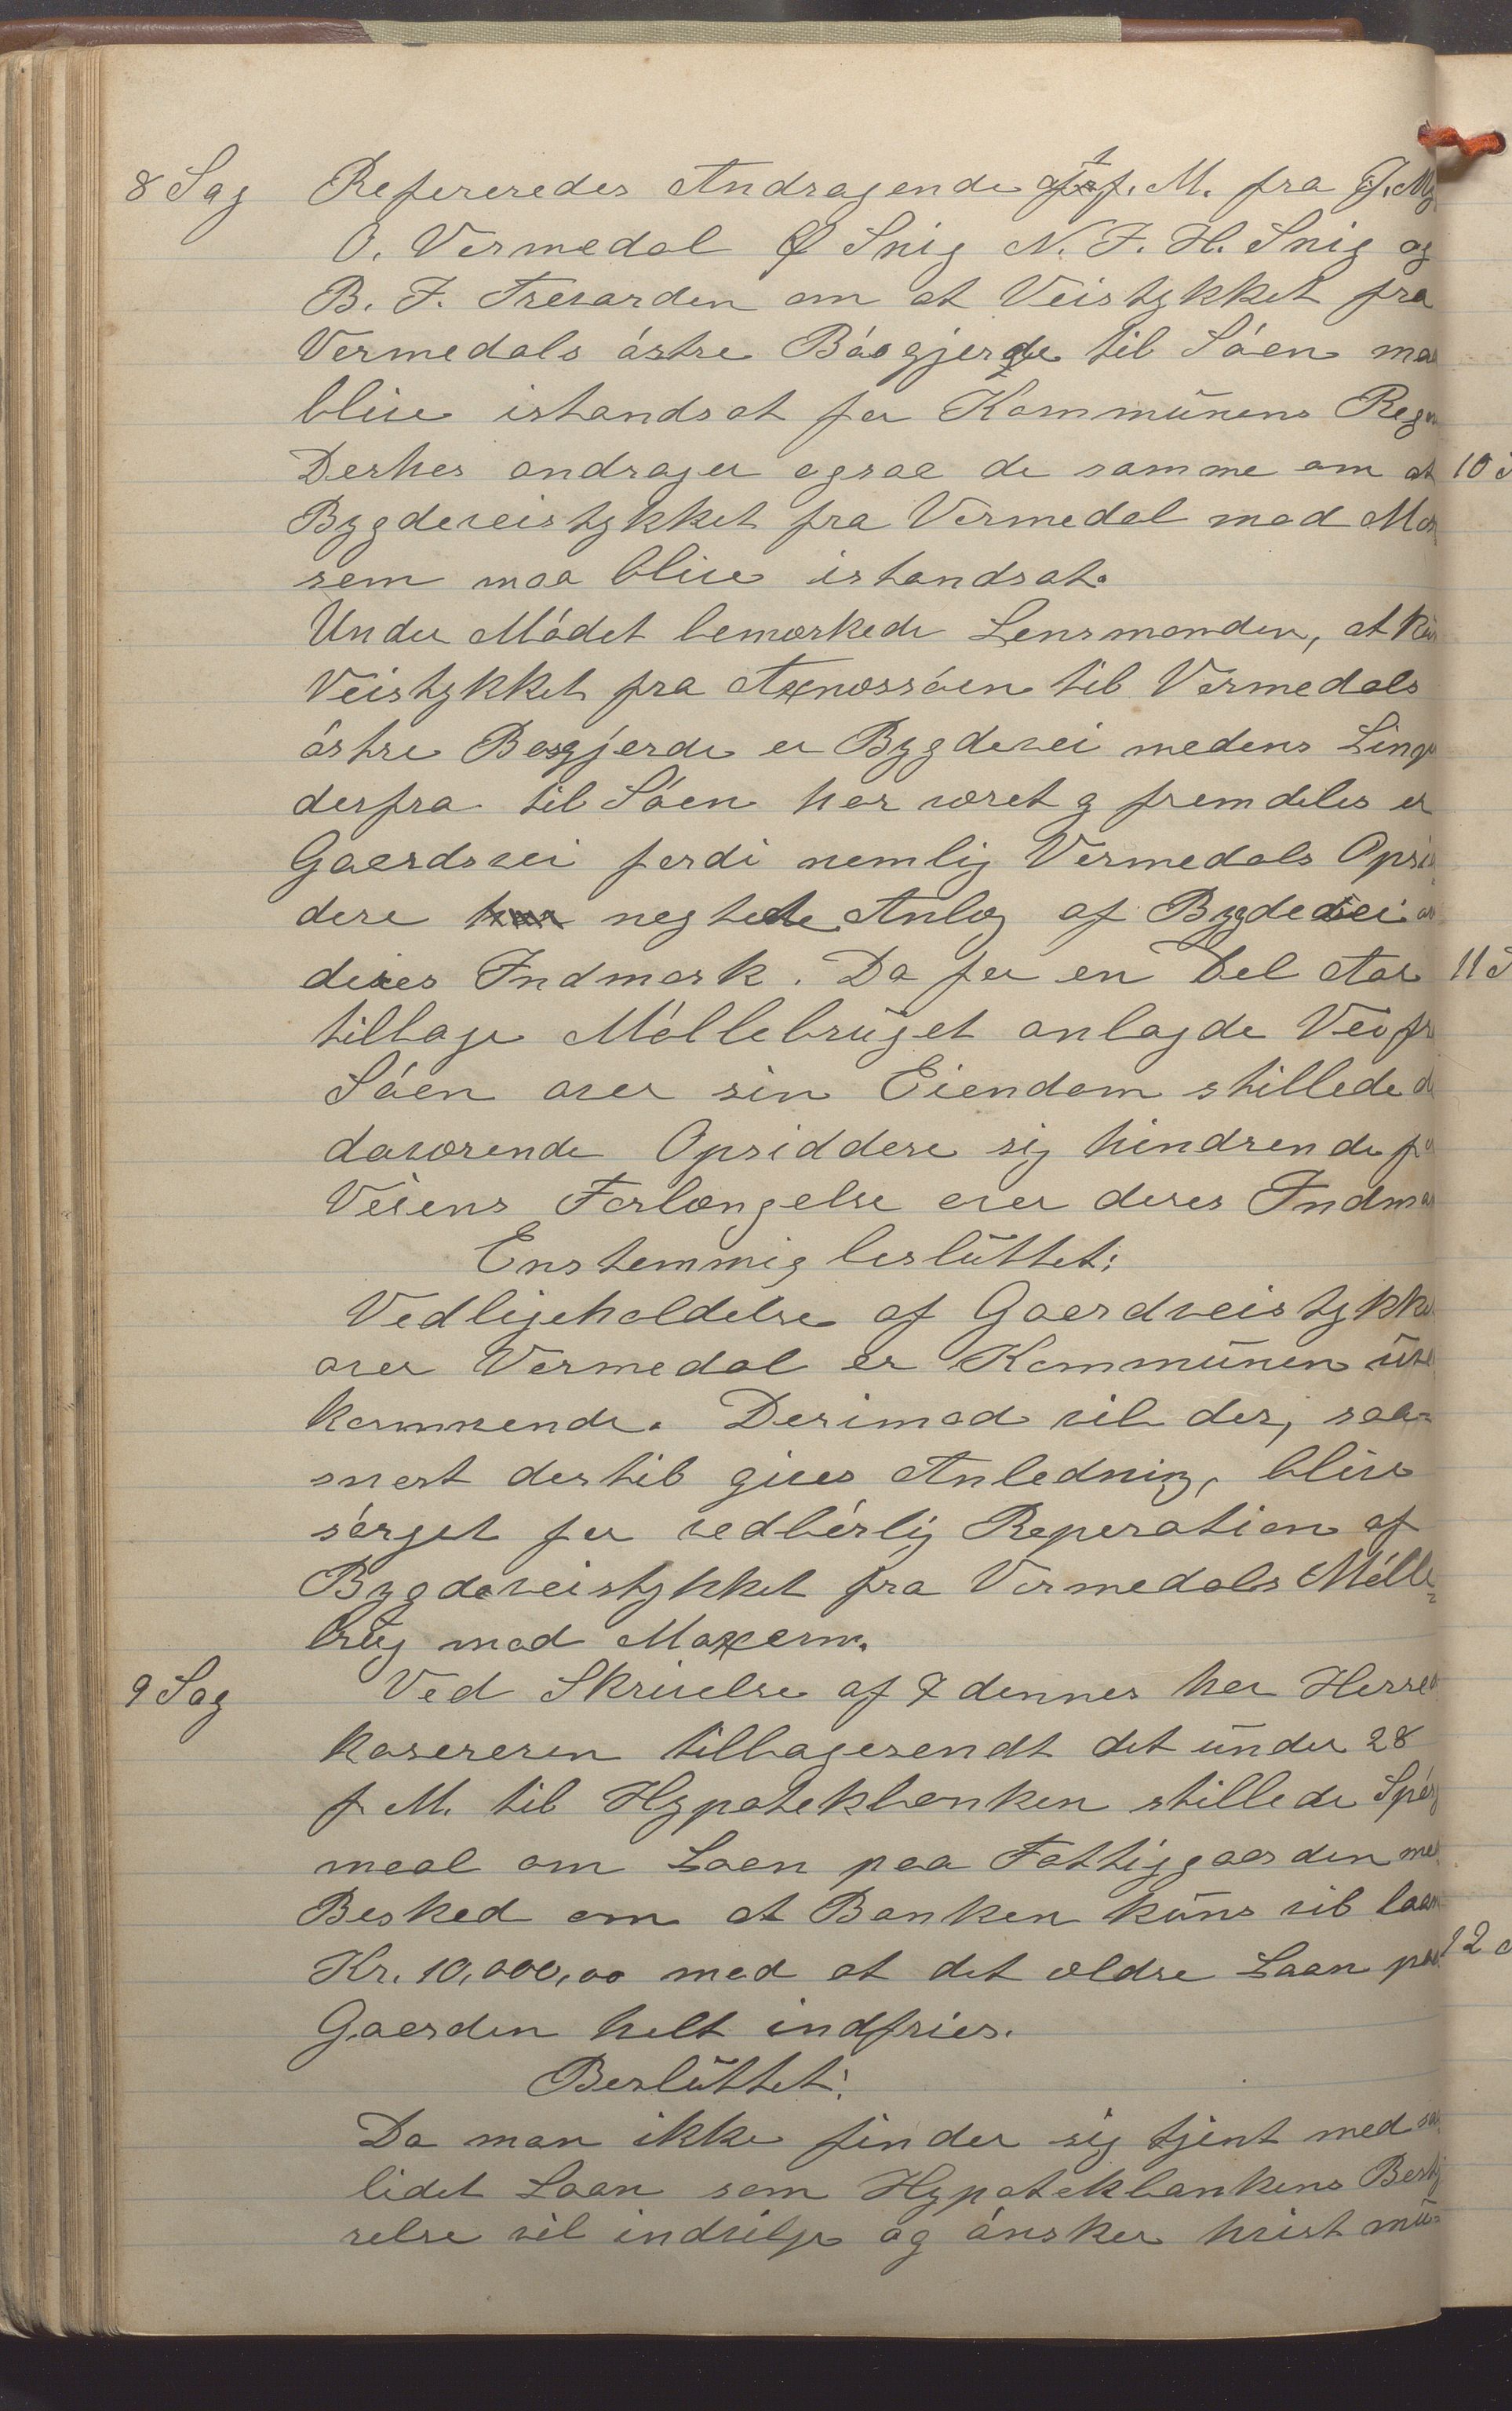 8 Sag Refereredes Andragende af f. M. fra
O. Vermedal Ø Snig N. F. H. Snig og
B. F. om at Veistykket fra
Vermedals östre Bósgjerde til Söen maa
blive istandsat for Kommunens Regn
Derhos andrager ogsaa de samme om at
Bygdeveistykket fra Vermedal mod Mo
sem maa blive istandsat.
Under Mödet bemærkede Lensmanden, at kun
Veistykket fra til Vermedals
östre Bosgjerde er Bygdevei medens Linje
derfra til Söen har været og fremdeles er
Gaardsvei fordi nemlig Vermedals Opsid
dere negtede Anlæg af Bygdevei
deres Indmark. Da for en Del Aar
tilbage Möllebruget anlagde Vei fr
Söen over sin Eiendom stillede d
daværende Opsiddere sig hindrende for
Veiens Forlængelse over deres Indma
Enstemmig besluttet:
Vedligeholdelse af Gaardveistykke
over Vermedal er Kommunen uved
kommende. Derimod vil der, saa-
snart dertil gives Anledning, blive
sörget for vedbörlig Reperation af
Bygdeveistykket fra Vermedals Mölle
brug mod Moxem.
9 Sag Ved Skrivelse af 7 dennes har Herreds
kasereren tilbagesendt det under 28
f. M. til Hypotekbanken stillede Spörg
maal om Laan paa Fattiggaarden med
Besked om at Banken kuns vil laane
Kr. 10,000,00 mod at det ældre Laan paa
Gaarden helt indfries.
Besluttet:
Da man ikke finder sig tjent med saa
lidet Laan som Hypotekbankens Besty
relse vil indvilge og önsker hvist mu-
10 S
11 S
12